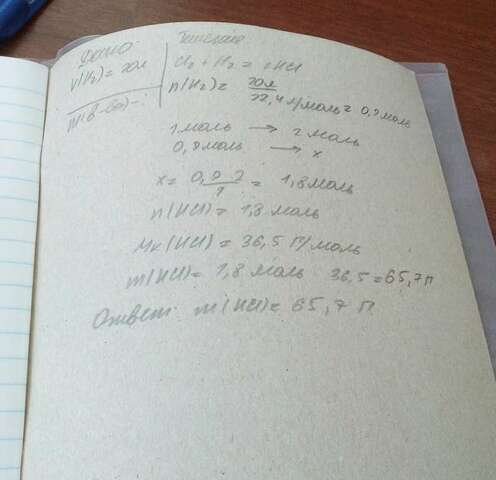 Дано
V(H2) = 20л
m(в-ва) - .
Решение
Cl2 + H2 = 2HCl
n(H2) = 20л / 22,4 л/моль = 0,9 моль
1 моль → 2 моль
0,9 моль → x
x = 0,9 · 2 / 1 = 1,8 моль
n(HCl) = 1,8 моль
(HCl) = 36,5 г/моль
m(HCl) = 1,8 моль · 36,5 = 65,7 г
Ответ: m(HCl) = 65,7 г